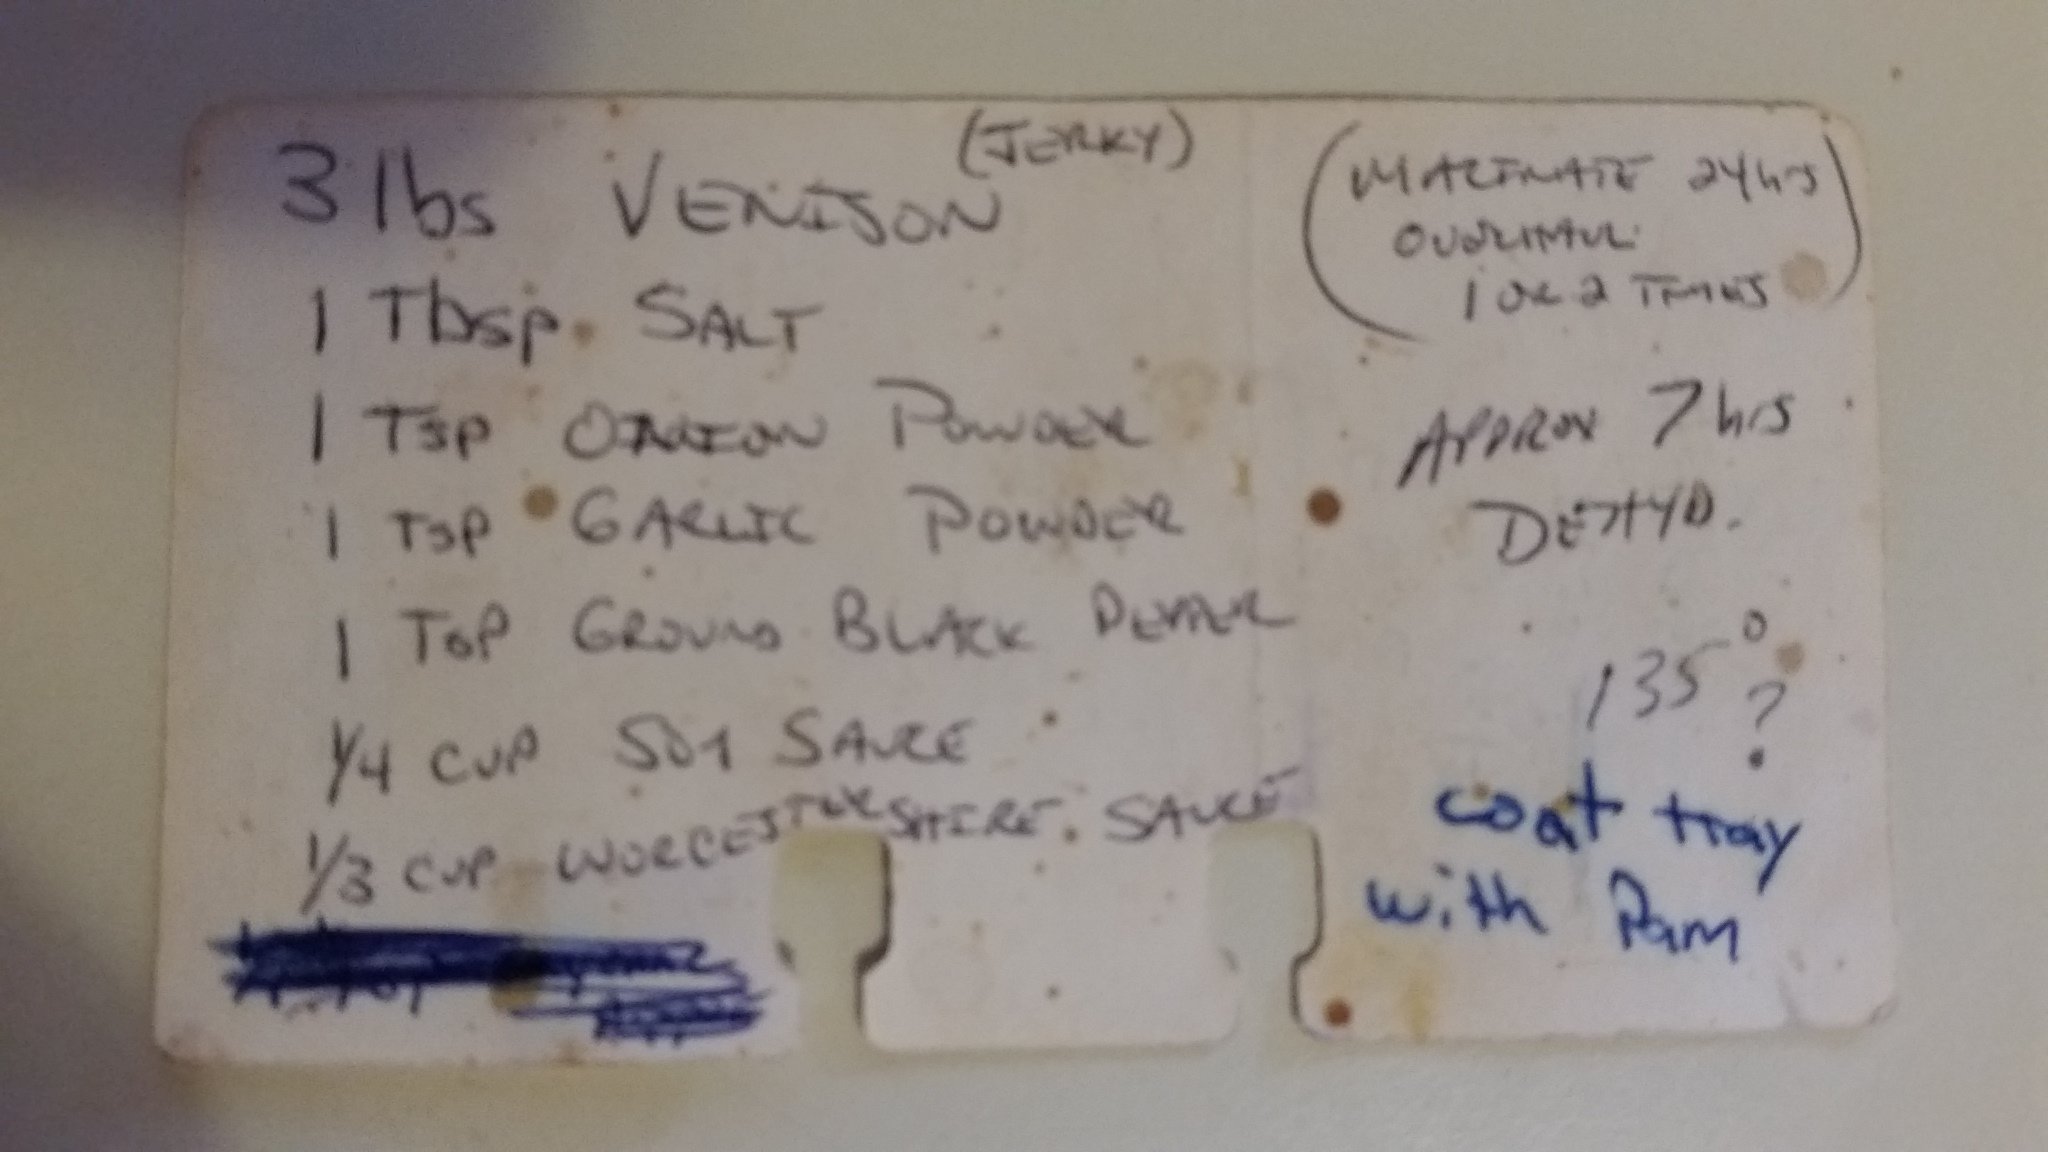 (JERKY)
3 lbs VENISON
1 Tbsp SALT
1 Tsp ONION POWDER
1 Tsp GARLIC POWDER
1 Tsp GROUND BLACK PEPPER
1/4 CUP SOY SAUCE
1/3 CUP WORCESTERSHIRE SAUCE
(MARINATE 24 hrs
OVERHAUL
1 OR 2 TIMES)
APPROX 7 hrs
DEHYD.
135°
?
coat tray
with Pam